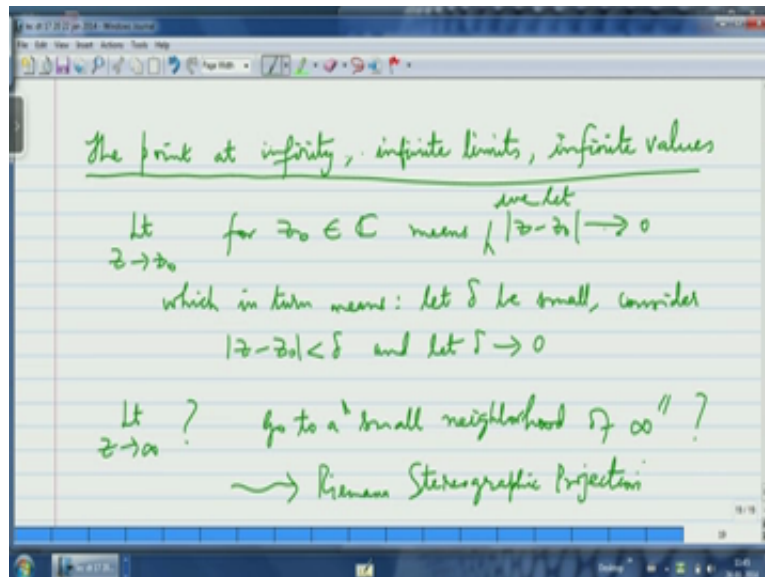 File Edit View Insert Actions Tools Help
Page Width
The point at infinity, infinite limits, infinite values
we let
Lt for z₀ ∈ ℂ means |z-z₀| → 0
z→z₀
which in turn means: let δ be small, consider
|z-z₀| < δ and let δ → 0
Lt ? go to a "small neighborhood of ∞" ?
z→∞
Riemann Stereographic Projection